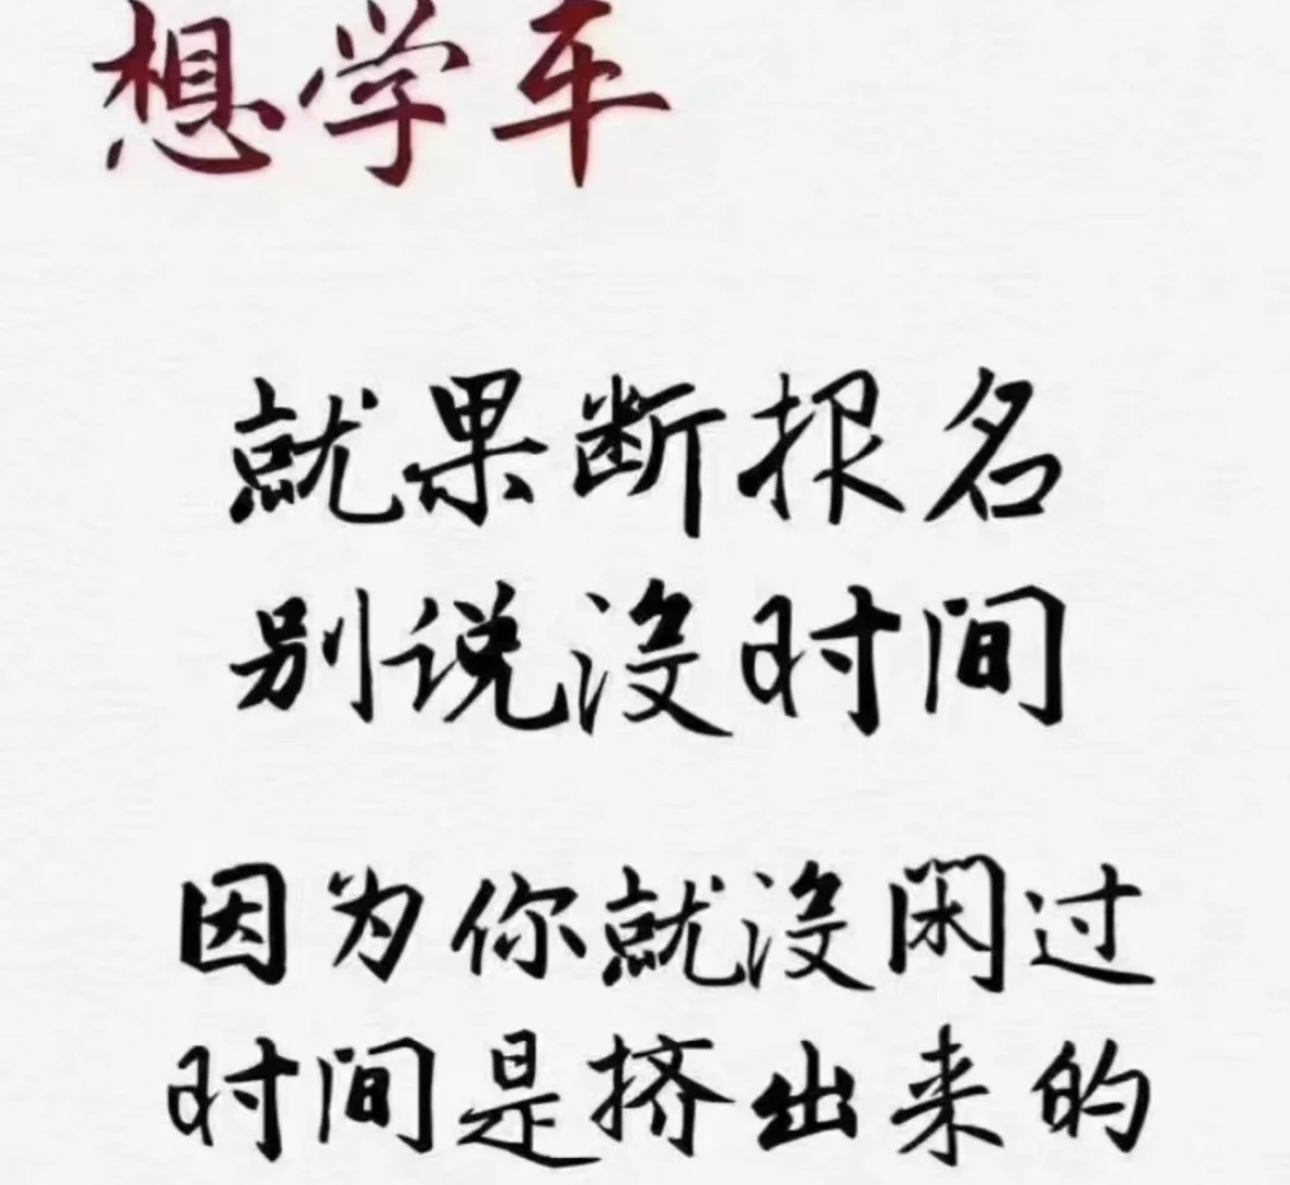 想学车
就果断报名
别说没时间
因为你就没闲过
时间是挤出来的